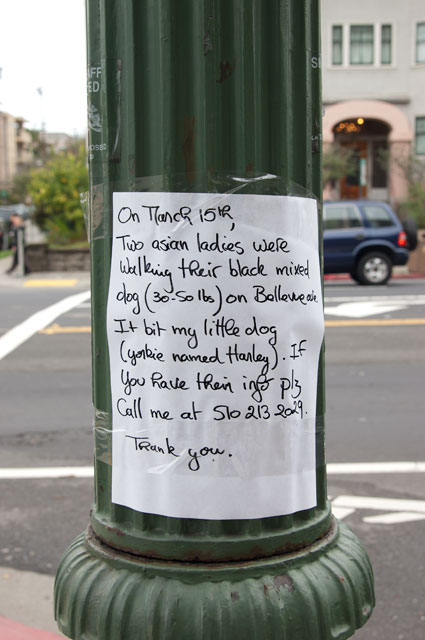 On March 15th,
Two asian ladies were
walking their black mixed
dog (30-50 lbs) on Bellevue ave.
It bit my little dog
(yorkie named Harley). If
you have their info plz
Call me at 510 213 2029.
Thank you.